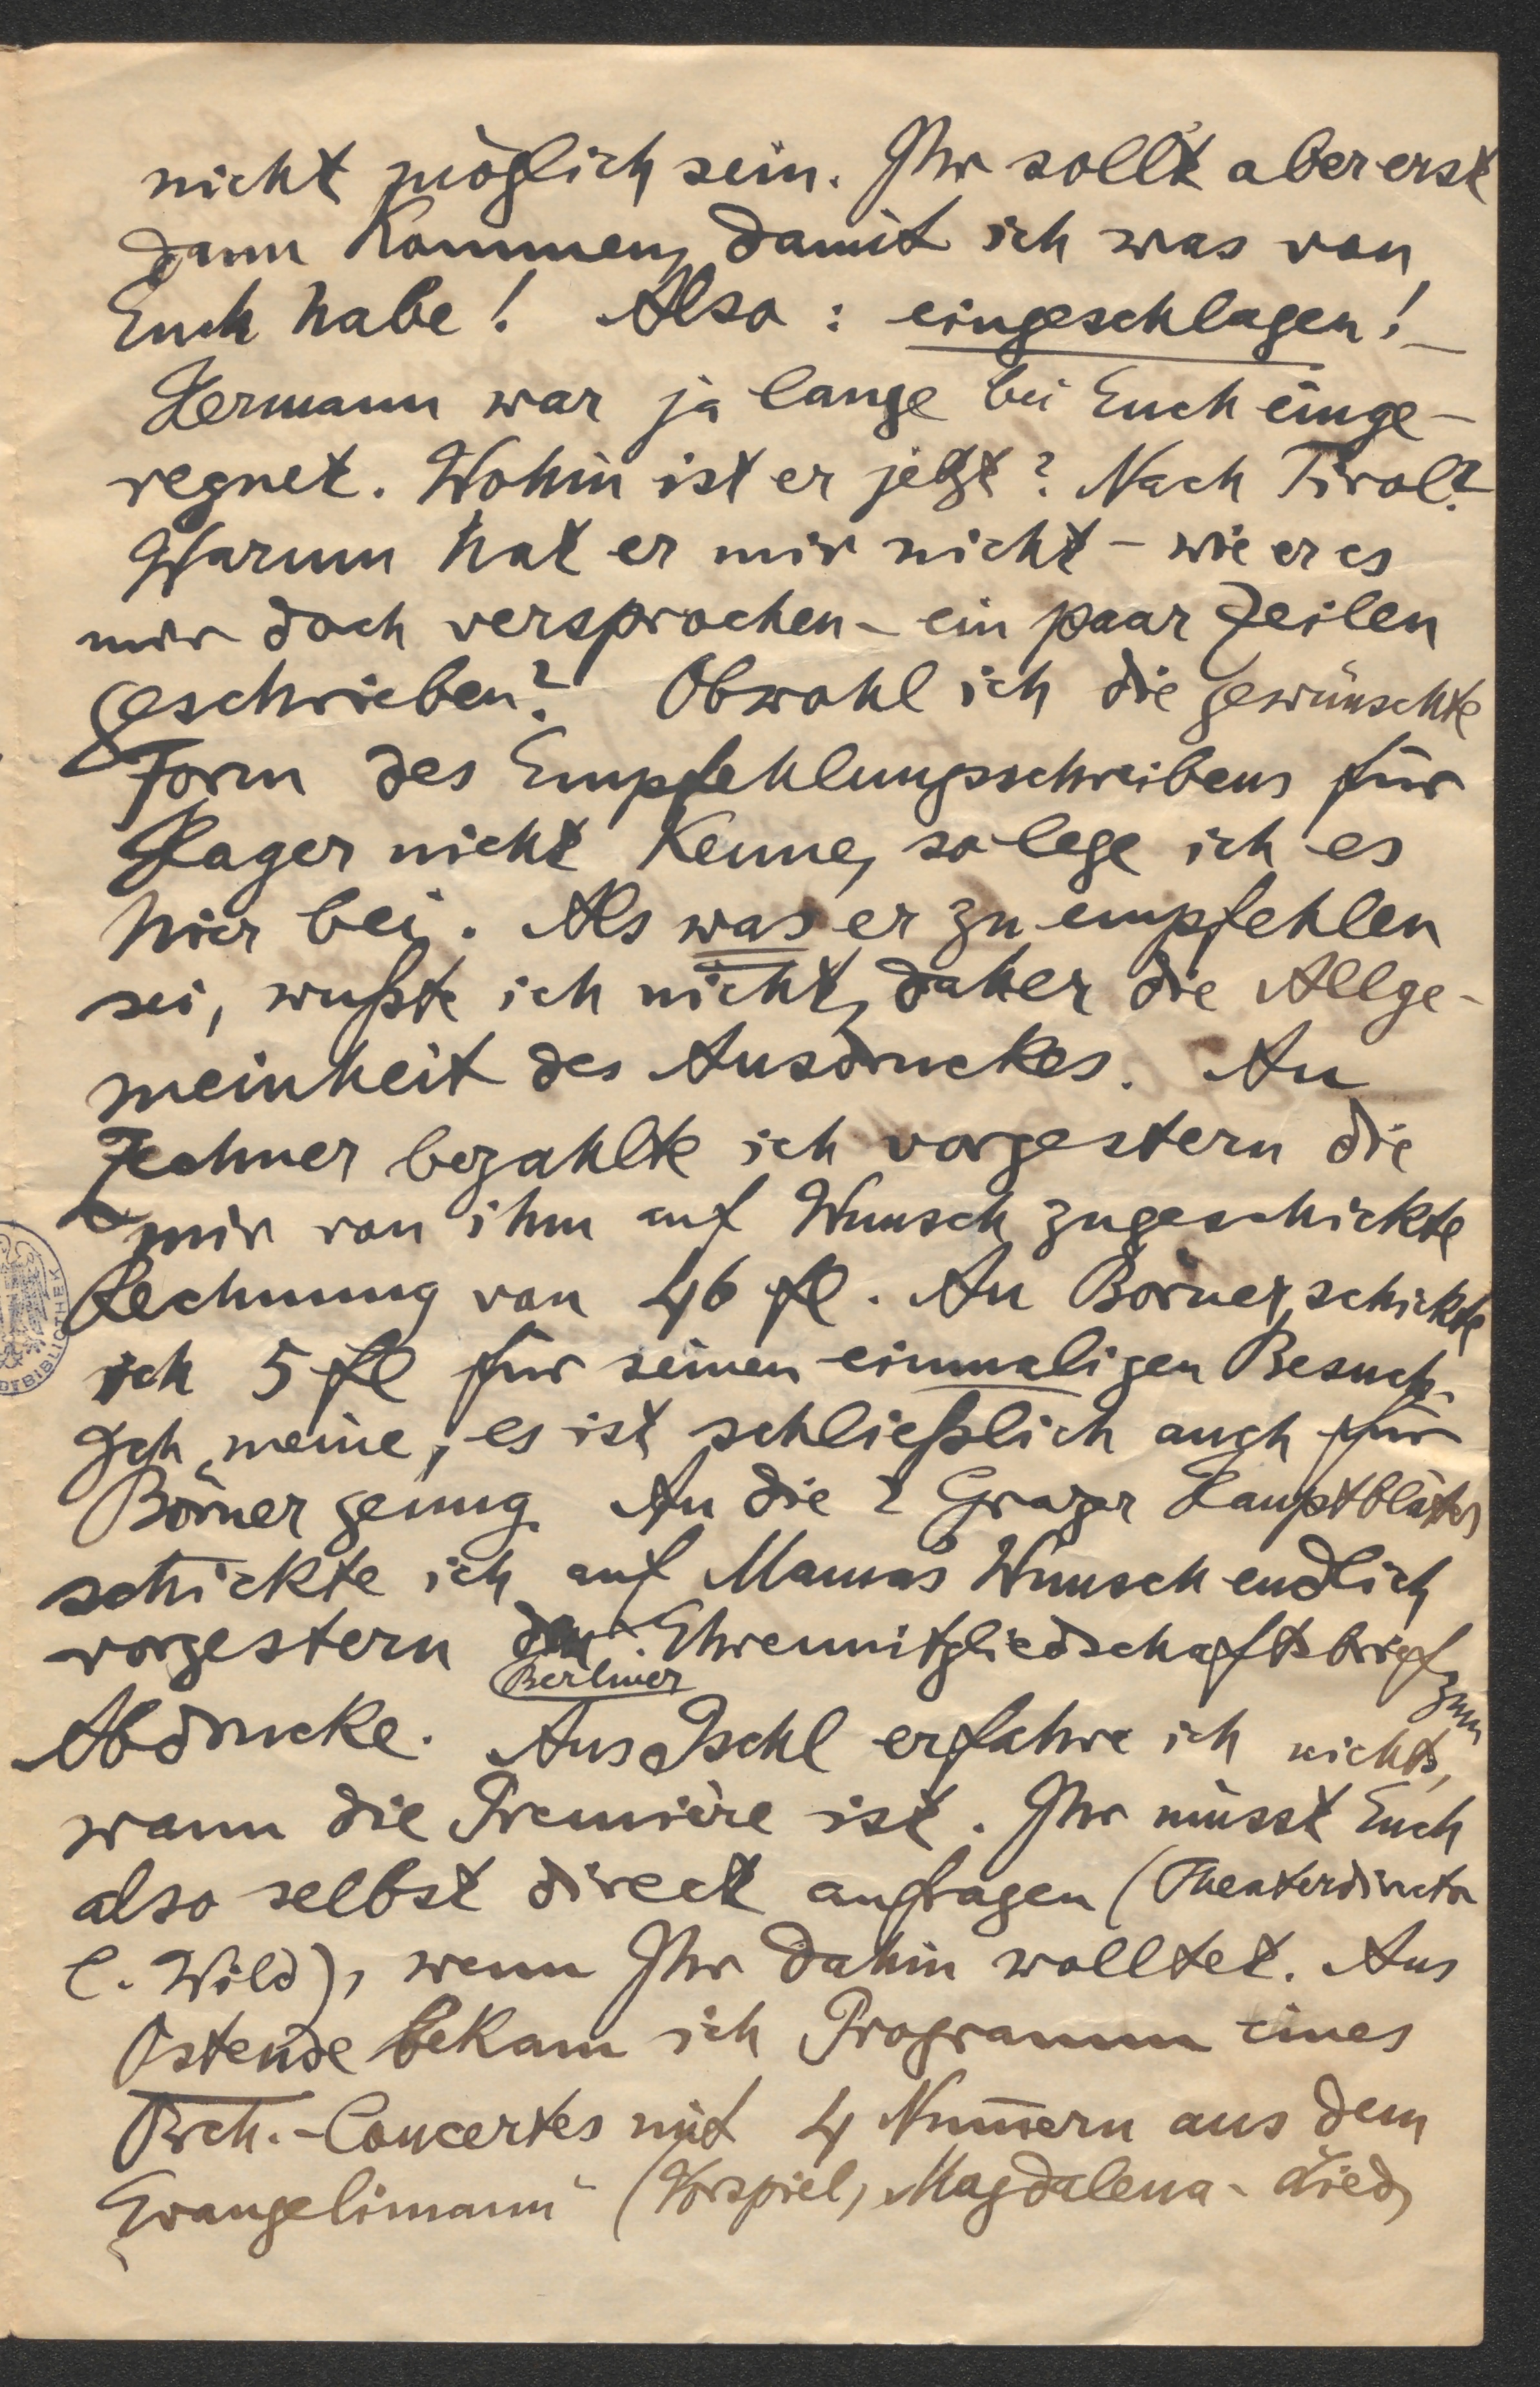 nicht möglich sein. Ihr sollt aber erst
dann kommen, damit ich was von
Euch habe! Also: eingeschlagen! –
Hermann war ja lange bei Euch einge-
regnet. Wohin ist er jetzt? Nach Tirol?
Warum hat er mir nicht – wie er es
mir doch versprochen – ein paar Zeilen
geschrieben? Obwohl ich die gewünschte
Form des Empfehlungsschreibens für
Hager nicht kenne, so lege ich es
hier bei. Als was er zu empfehlen
sei, wußte ich nicht, daher die Allge-
meinheit des Ausdruckes. An
Zechner bezahlte ich vorgestern die
mir von ihm auf Wunsch zugeschickte
Rechnung von 46 fl. An Börner schickte
ich 5 fl für seinen einmaligen Besuch.
Ich meine, es ist schließlich auch für
Börner genug. An die 2 Grazer Hauptblätter
schickte ich auf Mamas Wunsch endlich
vorgestern den Ehrenmitgliedschaftsbrief zum
Berliner
Abdrucke. Aus Ischl erfahre ich nichts,
wann die Première ist. Ihr müsst Euch
also selbst direct anfragen (Theaterdirector
C. Wild), wenn Ihr dahin wolltet. Aus
Ostende bekam ich Programm eines
Orch.-Concertes mit 4 Num̄ern aus dem
Evangelimann" (Vorspiel, Magdalena-Lied,